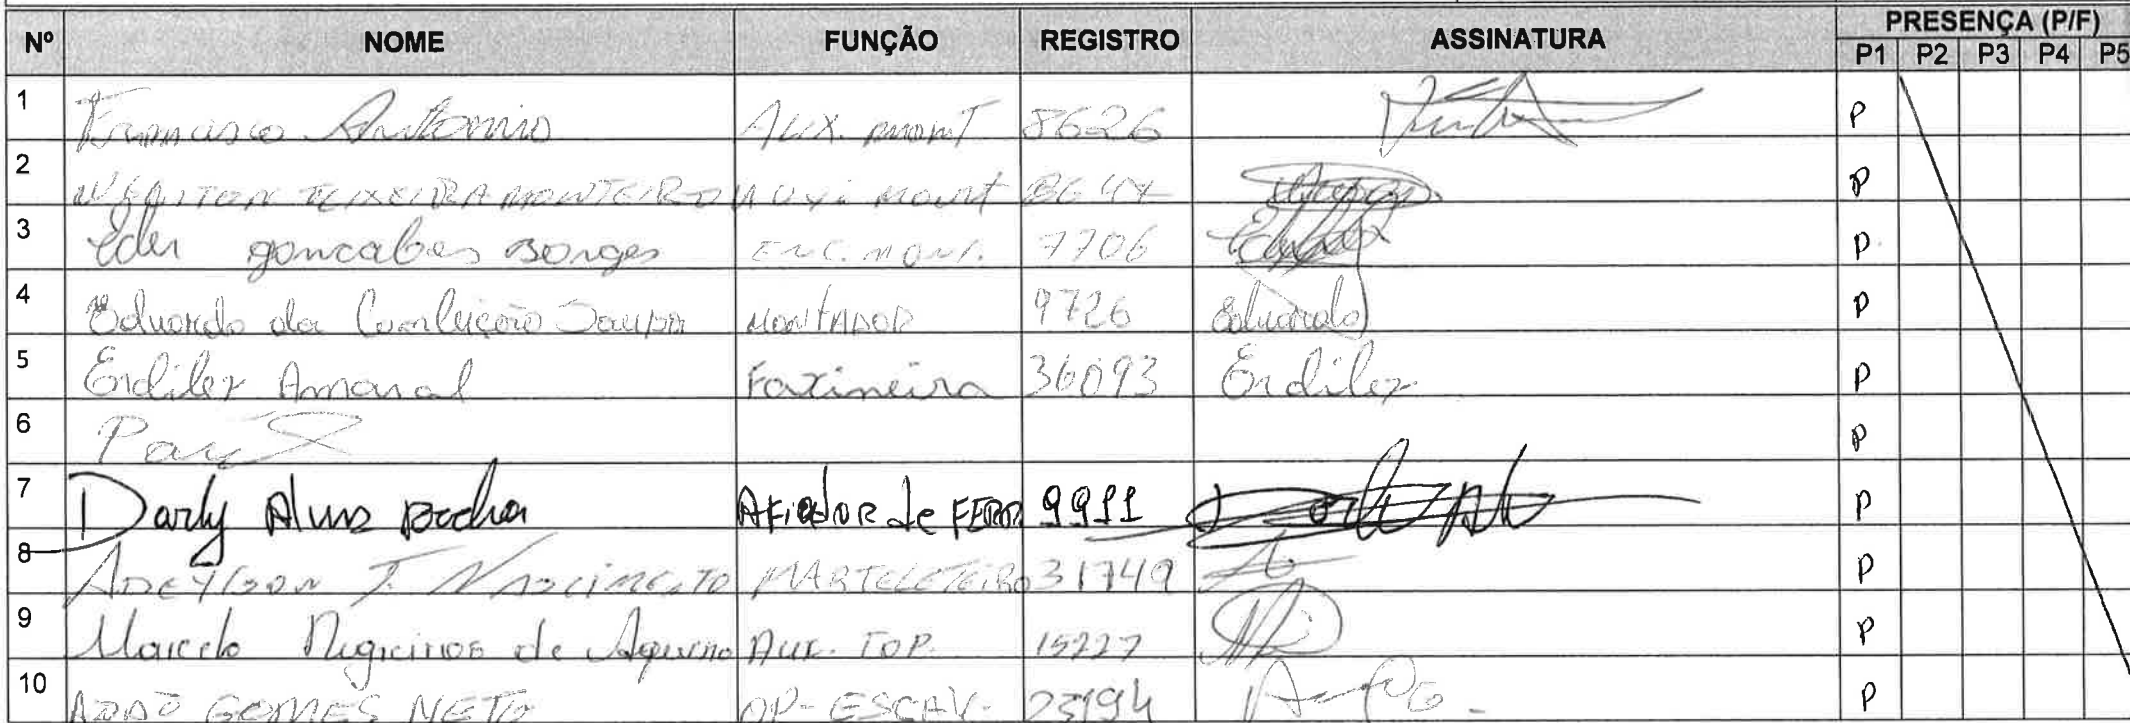 Nº NOME FUNÇÃO REGISTRO ASSINATURA PRESENÇA (P/F)
P1 P2 P3 P4 P5
1 Francisco Antonio AUX. MONT 8626 P
2 TEIXEIRA MONTEIRO AUX. MONT P
3 Eder goncalves Borges ENC. MONT. 7706 P
4 Eduardo da MONTADOR 9726 Eduardo P
5 Erdiley Amaral Faxineira 36093 Erdiley P
6 P
7 Darly Alves Rocha AFiADOR de FERR 9911 P
8 ADEYLSON J. NASCIMENTO MARTELETEIRO 31749 P
9 Marcelo de Aquino AUX. TOP. 15227 P
10 GOMES NETO OP-ESCAV. 23194 P